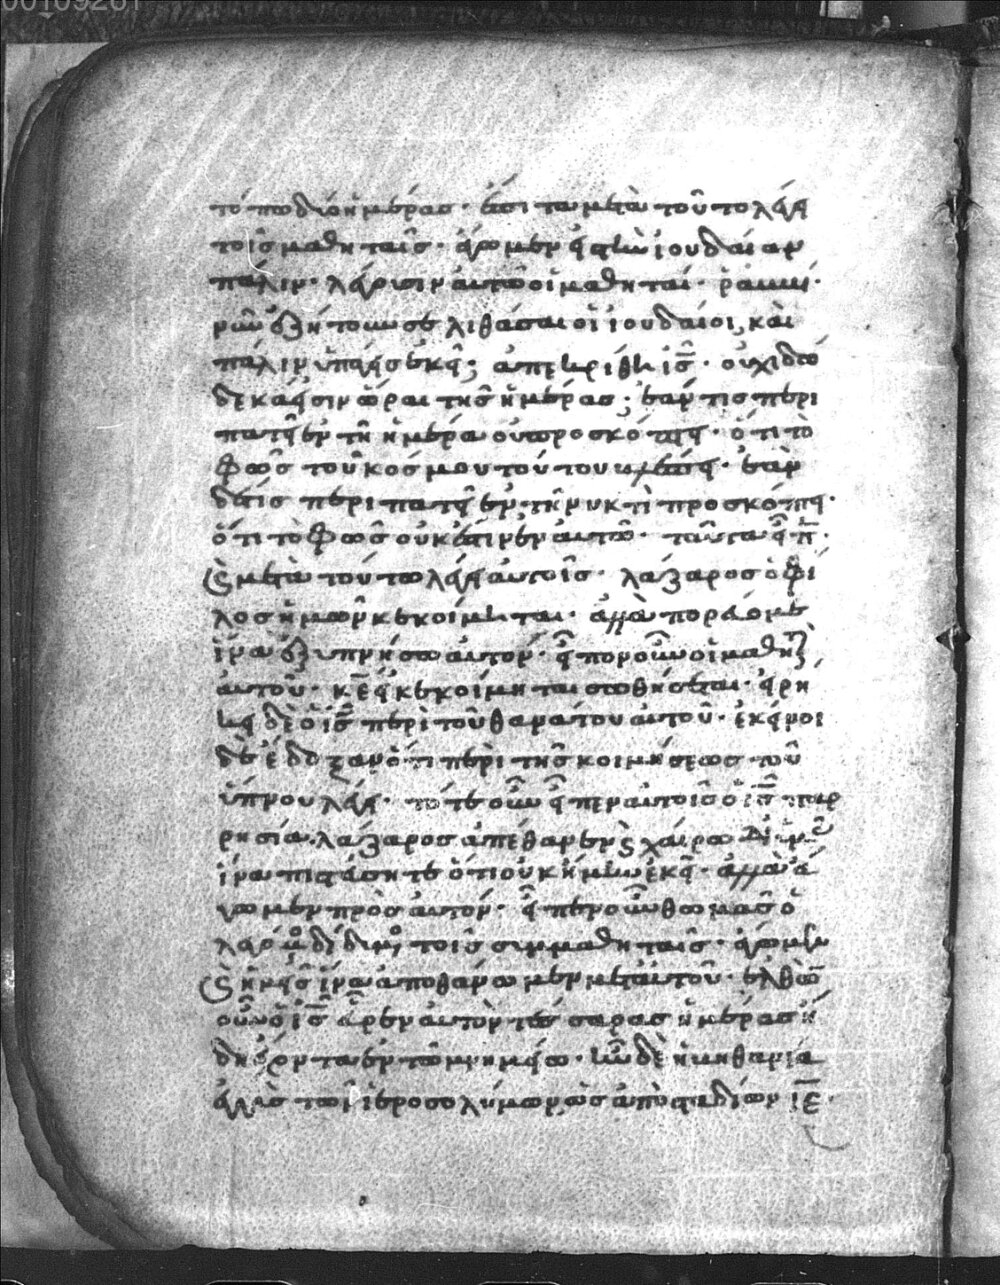 00109281
τόπω δύο ἡμέρας· ἔπειτα μετὰ τοῦτο λέγει
τοῖς μαθηταῖς· ἄγωμεν εἰς τὴν ἰουδαίαν
πάλιν· λέγουσιν αὐτῶ οἱ μαθηταί· ῥαββί·
νῦν ἐζήτουν σε λιθάσαι οἱ ἰουδαίοι, καὶ
πάλιν ὑπάγεις ἐκεῖ; ἀπεκρίθη ις̅· οὐχὶ δώ
δεκά εἰσιν ὧραι τῆς ἡμέρας; ἐάν τις περι
πατεῖ ἐν τῆ ἡμέρα οὐ προσκόπτει· ὅτι τὸ
φῶς τοῦ κόσμου τούτου βλέπει· ἐὰν
δέ τις περιπατεῖ ἐν τῆ νυκτὶ προσκόπτει·
ὅτι τὸ φῶς οὐκ ἔστιν ἐν αὐτῶ· ταῦτα εἶπ̅·
ϛ μετὰ τούτω λέγει αὐτοῖς· λάζαρος ὁ φί
λος ἡμῶν κεκοίμηται· ἀλλὰ πορεύομαι
ἵνα ἐξυπνήσω αὐτόν· εἶπον οὖν οἱ μαθηταὶ
αὐτοῦ· κε̅ εἰ κεκοίμηται σωθήσεται· εἰρή
κει δὲ ὁ ις̅ περὶ τοῦ θανάτου αὐτοῦ· ἐκεῖνοι
δὲ ἔδοξαν ὅτι περὶ τῆς κοιμήσεως τοῦ
ὕπνου λέγει· τότε οὖν εἶπεν αὐτοῖς ὁ ις̅ παρ
ρησία λάζαρος ἀπέθανεν ϛ χαίρω δι' ὑμᾶς
ἵνα πιστεύσητε ὅτι οὐκ ἤμην ἐκεῖ· ἀλλὰ ἄ
γωμεν πρὸς αὐτόν· εἶπεν οὖν θωμᾶς ὁ
λεγόμενος δίδυμος τοῖς συμμαθηταῖς· ἄγωμεν
ϛ ἡμεῖς ἵνα ἀποθάνωμεν μετ αὐτοῦ· ἐλθὼν
οὖν ὁ ις̅ εὗρεν αὐτὸν τέσσαρας ἡμέρας ἤ
δη ἔχοντα ἐν τῶ μνημείω· ἦν δὲ ἡ βηθανία
ἐγγὺς τῶν ἱεροσολύμων ὡς ἀπὸ σταδίων ιε̅·